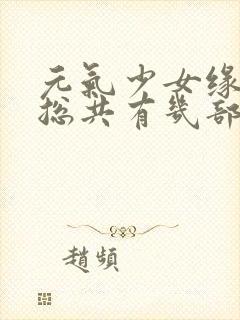 元氣少女缘
總共有幾部
趙頻